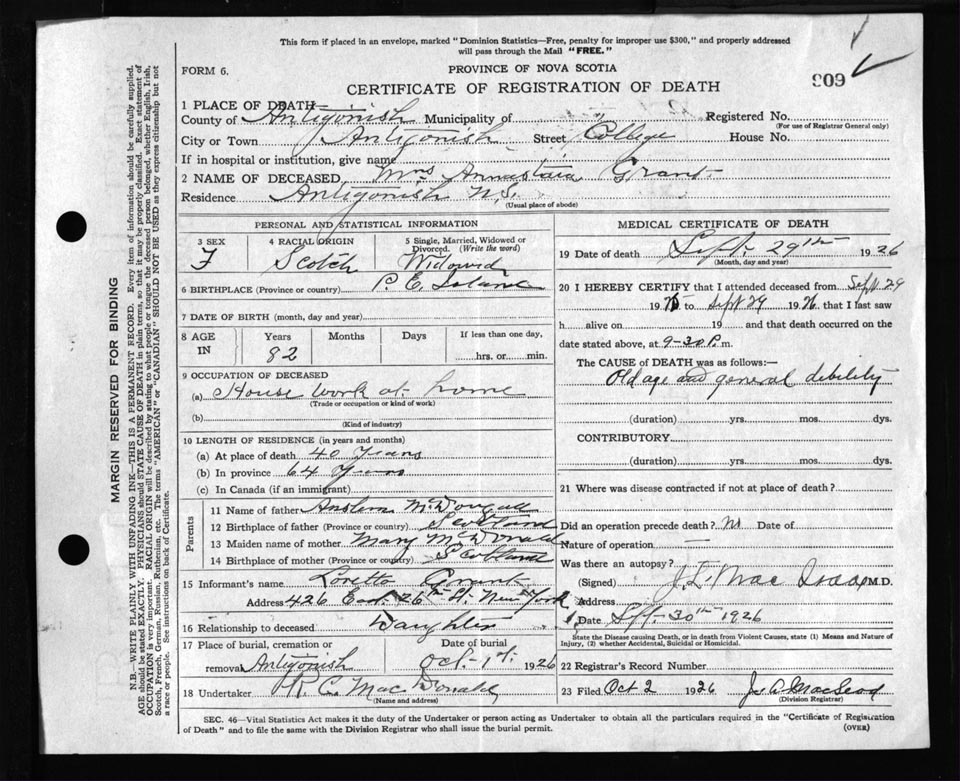 This form if placed in an envelope, marked "Dominion Statistics—Free, penalty for improper use $300," and properly addressed
will pass through the Mail "FREE."
FORM 6.
PROVINCE OF NOVA SCOTIA
CERTIFICATE OF REGISTRATION OF DEATH
909
1 PLACE OF DEATH—
County of Antigonish Municipality of Registered No.
(For use of Registrar General only)
City or Town Antigonish Street College House No.
If in hospital or institution, give name
2 NAME OF DECEASED Mrs Annastaia Grant
Residence Antigonish N.S.
(Usual place of abode)
PERSONAL AND STATISTICAL INFORMATION
3 SEX
F
4 RACIAL ORIGIN
Scotch
5 Single, Married, Widowed or Divorced. (Write the word)
Widowed
6 BIRTHPLACE (Province or country) P. E. Island
7 DATE OF BIRTH (month, day and year)
8 AGE IN Years Months Days If less than one day,
82 hrs. or min.
9 OCCUPATION OF DECEASED
(a) House work at home
(Trade or occupation or kind of work)
(b)
(Kind of industry)
10 LENGTH OF RESIDENCE (in years and months)
(a) At place of death 40 Years
(b) In province 64 Years
(c) In Canada (if an immigrant)
Parents
11 Name of father Anslem McDougall
12 Birthplace of father (Province or country) Scotland
13 Maiden name of mother Mary McDonald
14 Birthplace of mother (Province or country) Scotland
15 Informant's name Loretto Grant
Address 426 East 26th St. New York
16 Relationship to deceased Daughter
17 Place of burial, cremation or removal Antigonish
Date of burial Oct. 1st. 1926
18 Undertaker R. C. MacDonald
(Name and address)
MEDICAL CERTIFICATE OF DEATH
19 Date of death Sept. 29th 1926
(Month, day and year)
20 I HEREBY CERTIFY that I attended deceased from Sept 29
1926 to Sept 29 1926 that I last saw
h alive on 19 and that death occurred on the
date stated above, at 9-30 P.m.
The CAUSE of DEATH was as follows:—
Old age and general debility
(duration) yrs. mos. dys.
CONTRIBUTORY
(duration) yrs. mos. dys.
21 Where was disease contracted if not at place of death?
Did an operation precede death? No Date of
Nature of operation —
Was there an autopsy?
(Signed) MacIsaac M.D.
Address
Date Sept. 30th 1926
State the Disease causing Death, or in death from Violent Causes, state (1) Means and Nature of
Injury, (2) whether Accidental, Suicidal or Homicidal.
22 Registrar's Record Number
23 Filed Oct 2 1926 Js A MacLeod
(Division Registrar)
SEC. 46—Vital Statistics Act makes it the duty of the Undertaker or person acting as Undertaker to obtain all the particulars required in the "Certificate of Registration
of Death" and to file the same with the Division Registrar who shall issue the burial permit.
(OVER)
MARGIN RESERVED FOR BINDING
N.B.—WRITE PLAINLY WITH UNFADING INK—THIS IS A PERMANENT RECORD. Every item of information should be carefully supplied.
AGE should be stated EXACTLY. PHYSICIANS should STATE CAUSE OF DEATH in plain terms, so that it may be properly classified. Exact statement of
OCCUPATION is very important. RACIAL ORIGIN will be described by stating to what people or tongue the deceased person belonged, whether English, Irish,
Scotch, French, German, Russian, Ruthenian, etc. The terms "AMERICAN" or "CANADIAN" SHOULD NOT BE USED as they express citizenship but not
a race or people. See instructions on back of Certificate.